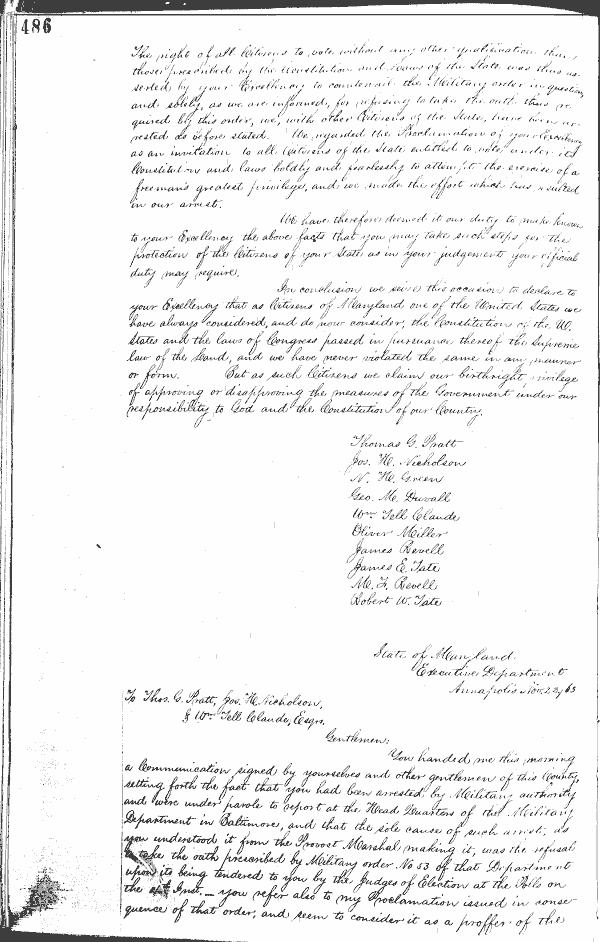 486
The right of all Citizens to vote without any other qualification than
those prescribed by the Constitution and Laws of the State was thus as-
serted by your Excellency to countervail the Military order in question,
and solely, as we are informed, for refusing to take the oath thus re-
quired by this order, we, with other Citizens of the State, have been ar-
rested as before stated. We regarded the Proclamation of your Excellency
as an invitation to all Citizens of the State entitled to vote, under its
Constitution and laws boldly and fearlessly to attempt the exercise of a
freeman's greatest privileges, and we made the effort which has resulted
in our arrest.
We have therefore deemed it our duty to make known
to your Excellency the above facts that you may take such steps for the
protection of the Citizens of your State as in your judgement your official
duty may require.
In conclusion we seize this occasion to declare to
your Excellency that as Citizens of Maryland one of the United States we
have always considered, and do now consider, the Constitution of the U.
States and the laws of Congress passed in pursuance thereof the Supreme
law of the Land, and we have never violated the same in any manner
or form. But as such Citizens we claim our birthright privilege
of approving or disapproving the measures of the Government under our
responsibility to God and the Constitution of our Country.
Thomas G. Pratt
Jos. H. Nicholson
N. H. Green
Geo. M. Duvall
Wm. Tell Claude
Oliver Miller
James Revell
James E. Tate
M. F. Revell
Robert W. Tate
State of Maryland.
Executive Department
Annapolis Nov. 2, 63
To Thos. G. Pratt, Jos. H. Nicholson,
& Wm. Tell Claude, Esqrs.
Gentlemen:
You handed me this morning
a Communication signed by yourselves and other gentlemen of this County,
setting forth the fact that you had been arrested by Military authority
and were under parole to report at the Head Quarters of the Military
Department in Baltimore, and that the sole cause of such arrest, as
you understood it from the Provost Marshal making it, was the refusal
to take the oath prescribed by Military order No 53 of that Department
upon its being tendered to you by the Judges of Election at the Polls on
the Inst. - you refer also to my Proclamation issued in conse-
quence of that order, and seem to consider it as a proffer of the